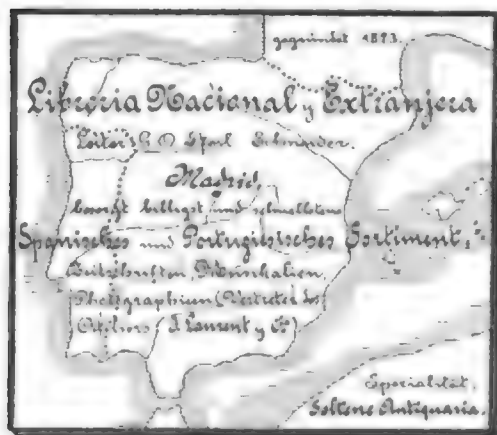 gegründet 1873.
Libreria Nacional y Extranjera
Leiter: Carl Schneider.
Madrid,
besorgt billigst und schnellstens
Spanisches und Portugiesisches Sortiment,
Zeitschriften, Musikalien,
Photographien (Vertreter des
Ateliers J. Laurent y Cº)
Spezialität,
Seltene Antiquaria.